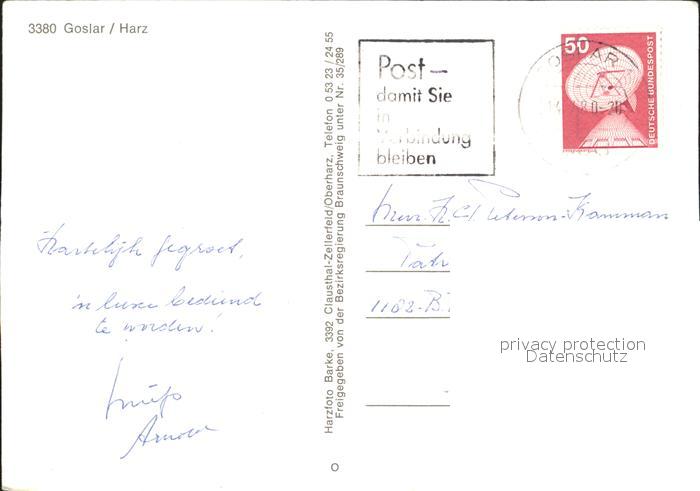 3380 Goslar / Harz
Hartelijk gegroet,
'n luxe bediend
te worden!
Arnold
Harzfoto Barke, 3392 Clausthal-Zellerfeld/Oberharz, Telefon 0 53 23 / 24 55
Freigegeben von der Bezirksregierung Braunschweig unter Nr. 35/289
Post –
damit Sie
in
Verbindung
bleiben
50
DEUTSCHE BUNDESPOST
GOSLAR
1182-B
privacy protection
Datenschutz